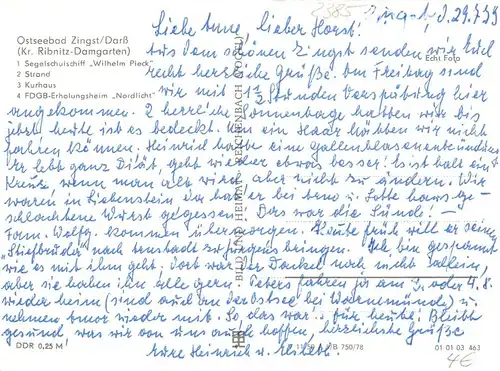 2385
Zingst, d. 29.7.79
Ostseebad Zingst/Darß
(Kr. Ribnitz-Damgarten)
1 Segelschulschiff „Wilhelm Pieck"
2 Strand
3 Kurhaus
4 FDGB-Erholungsheim „Nordlicht"
Echt Foto
Liebe Anne, lieber Horst!
Aus dem schönen Zingst senden wir Euch
recht herzliche Grüße. Am Freitag sind
wir mit 1½ Stunden Verspätung hier
angekommen. 2 herrliche Sonnentage hatten wir bis
jetzt, heute ist es bedeckt. Um ein Haar hätten wir nicht
fahren können. Heinrich hatte eine Gallenblasenentzündung
Er lebt ganz Diät, geht wieder etwas besser. Ist halt ein
Kreuz, wenn man alt wird, aber nicht zu ändern. Wir
waren in Liebenstein da haben wir bei und Lotte hausge-
schlachtene Wurst gegessen. Das war die Sünde! —
Fam. Wolfg. kommen übermorgen. Heute früh will er seinen
„Stiefbruder" nach zu bringen. Ich bin gespannt
wie es mit ihm geht. Dort war der Dackel noch nicht allein,
aber sie haben ihn alle gern. Peters fahren ja am 3. oder 4.8.
wieder heim (sind auch an der Ostsee bei Warnemünde) u.
nehmen Omor wieder mit. So das wär's für heute! Bleibt
gesund, was wir von uns auch hoffen, herzlichste Grüße
Eure Heinrich u. Elsbeth.
BILD UND HEIMAT REICHENBACH (VOGTL)
DDR 0,25 M
750/78
01 01 03 463
4€